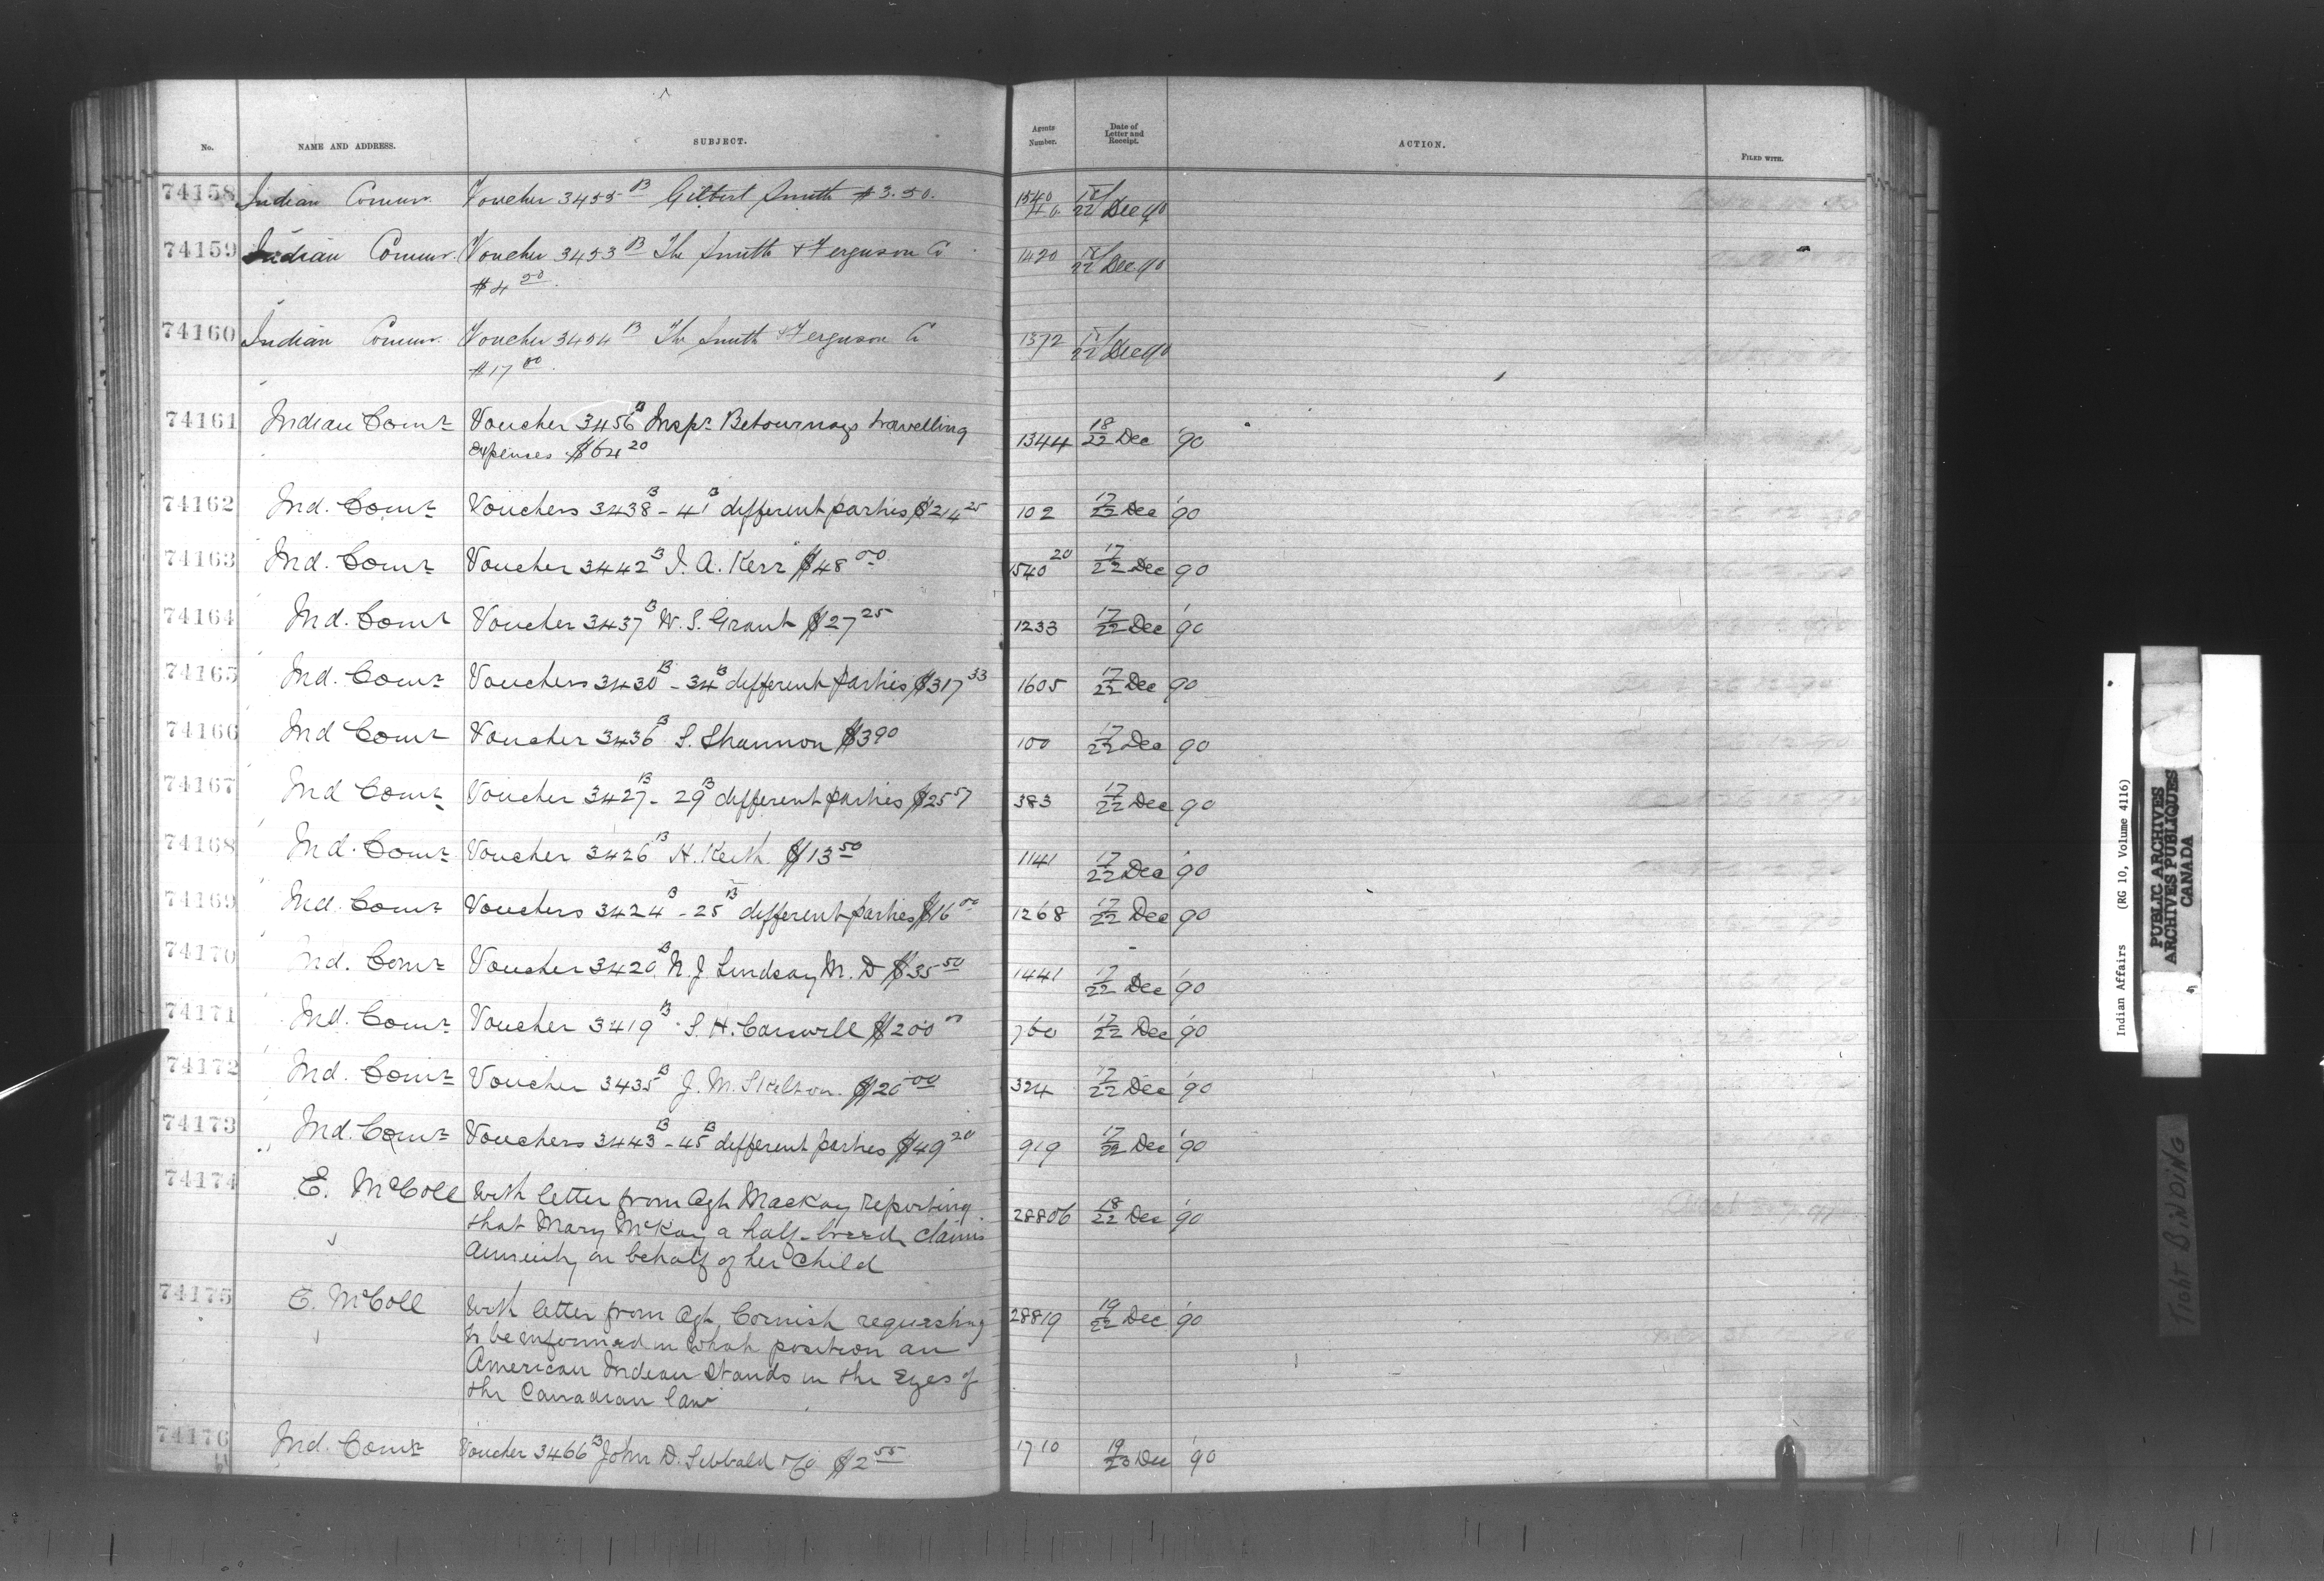 No. NAME AND ADDRESS. SUBJECT. Agents Number. Date of Letter and Receipt. ACTION. FILED WITH.
74158 Indian Commr. Voucher 3455 B Gilbert Smith $3.50. 1540 22 Dec 90
74159 Indian Commr. Voucher 3453 B The Smith & Ferguson Co 1420 22 Dec 90
$4 50.
74160 Indian Commr. Voucher 3454 B The Smith & Ferguson Co 1372 22 Dec 90
$17 00.
74161 Indian Comr Voucher 3456 B Inspr Betournays travelling
expenses $64 20 1344 18/22 Dec '90
74162 Ind. Comr Vouchers 3438 B - 41 B different parties $214 25 102 17/22 Dec '90
74163 Ind. Comr Voucher 3442 B I. A. Kerr $48 00 1540 20 17/22 Dec 90
74164 Ind. Comr Voucher 3437 B W. S. Grant $27 25 1233 17/22 Dec '90
74165 Ind. Comr Vouchers 3430 B - 34 B different parties $317 33 1605 17/22 Dec 90
74166 Ind Comr Voucher 3436 B S. Shannon $390 100 17/22 Dec 90
74167 Ind Comr Voucher 3427 - 29 B different parties $25 57 383 17/22 Dec 90
74168 Ind. Comr Voucher 3426 B H. Keith. $13 50 1141 17/22 Dec '90
74169 Ind. Comr Vouchers 3424 B - 25 B different parties $16 00 1268 17/22 Dec 90
74170 Ind. Comr Voucher 3420 B N. J. Lindsay M. D $35 50 1441 17/22 Dec '90
74171 Ind. Comr Voucher 3419 B S. H. Carswell $200 00 760 17/22 Dec '90
74172 Ind. Comr Voucher 3435 B J. M. Skelton. $20 00 324 17/22 Dec '90
74173 Ind. Comr Vouchers 3443 B - 45 B different parties $49 20 919 17/22 Dec '90
74174 E. McColl With letter from Agt Mackay reporting
that Mary McKay a half-breed claims 28806 18/22 Dec '90
Annuity on behalf of her child
74175 E. McColl With letter from Agt. Cornish requesting 28819 19/22 Dec '90
to be informed in what position an
American Indian stands in the Eyes of
the Canadian law
74176 Ind. Comr Voucher 3466 B John D. Sibbald & Co $2 55 1710 19/23 Dec '90
Indian Affairs (RG 10, Volume 4116)
PUBLIC ARCHIVES
ARCHIVES PUBLIQUES
CANADA
TIGHT BINDING